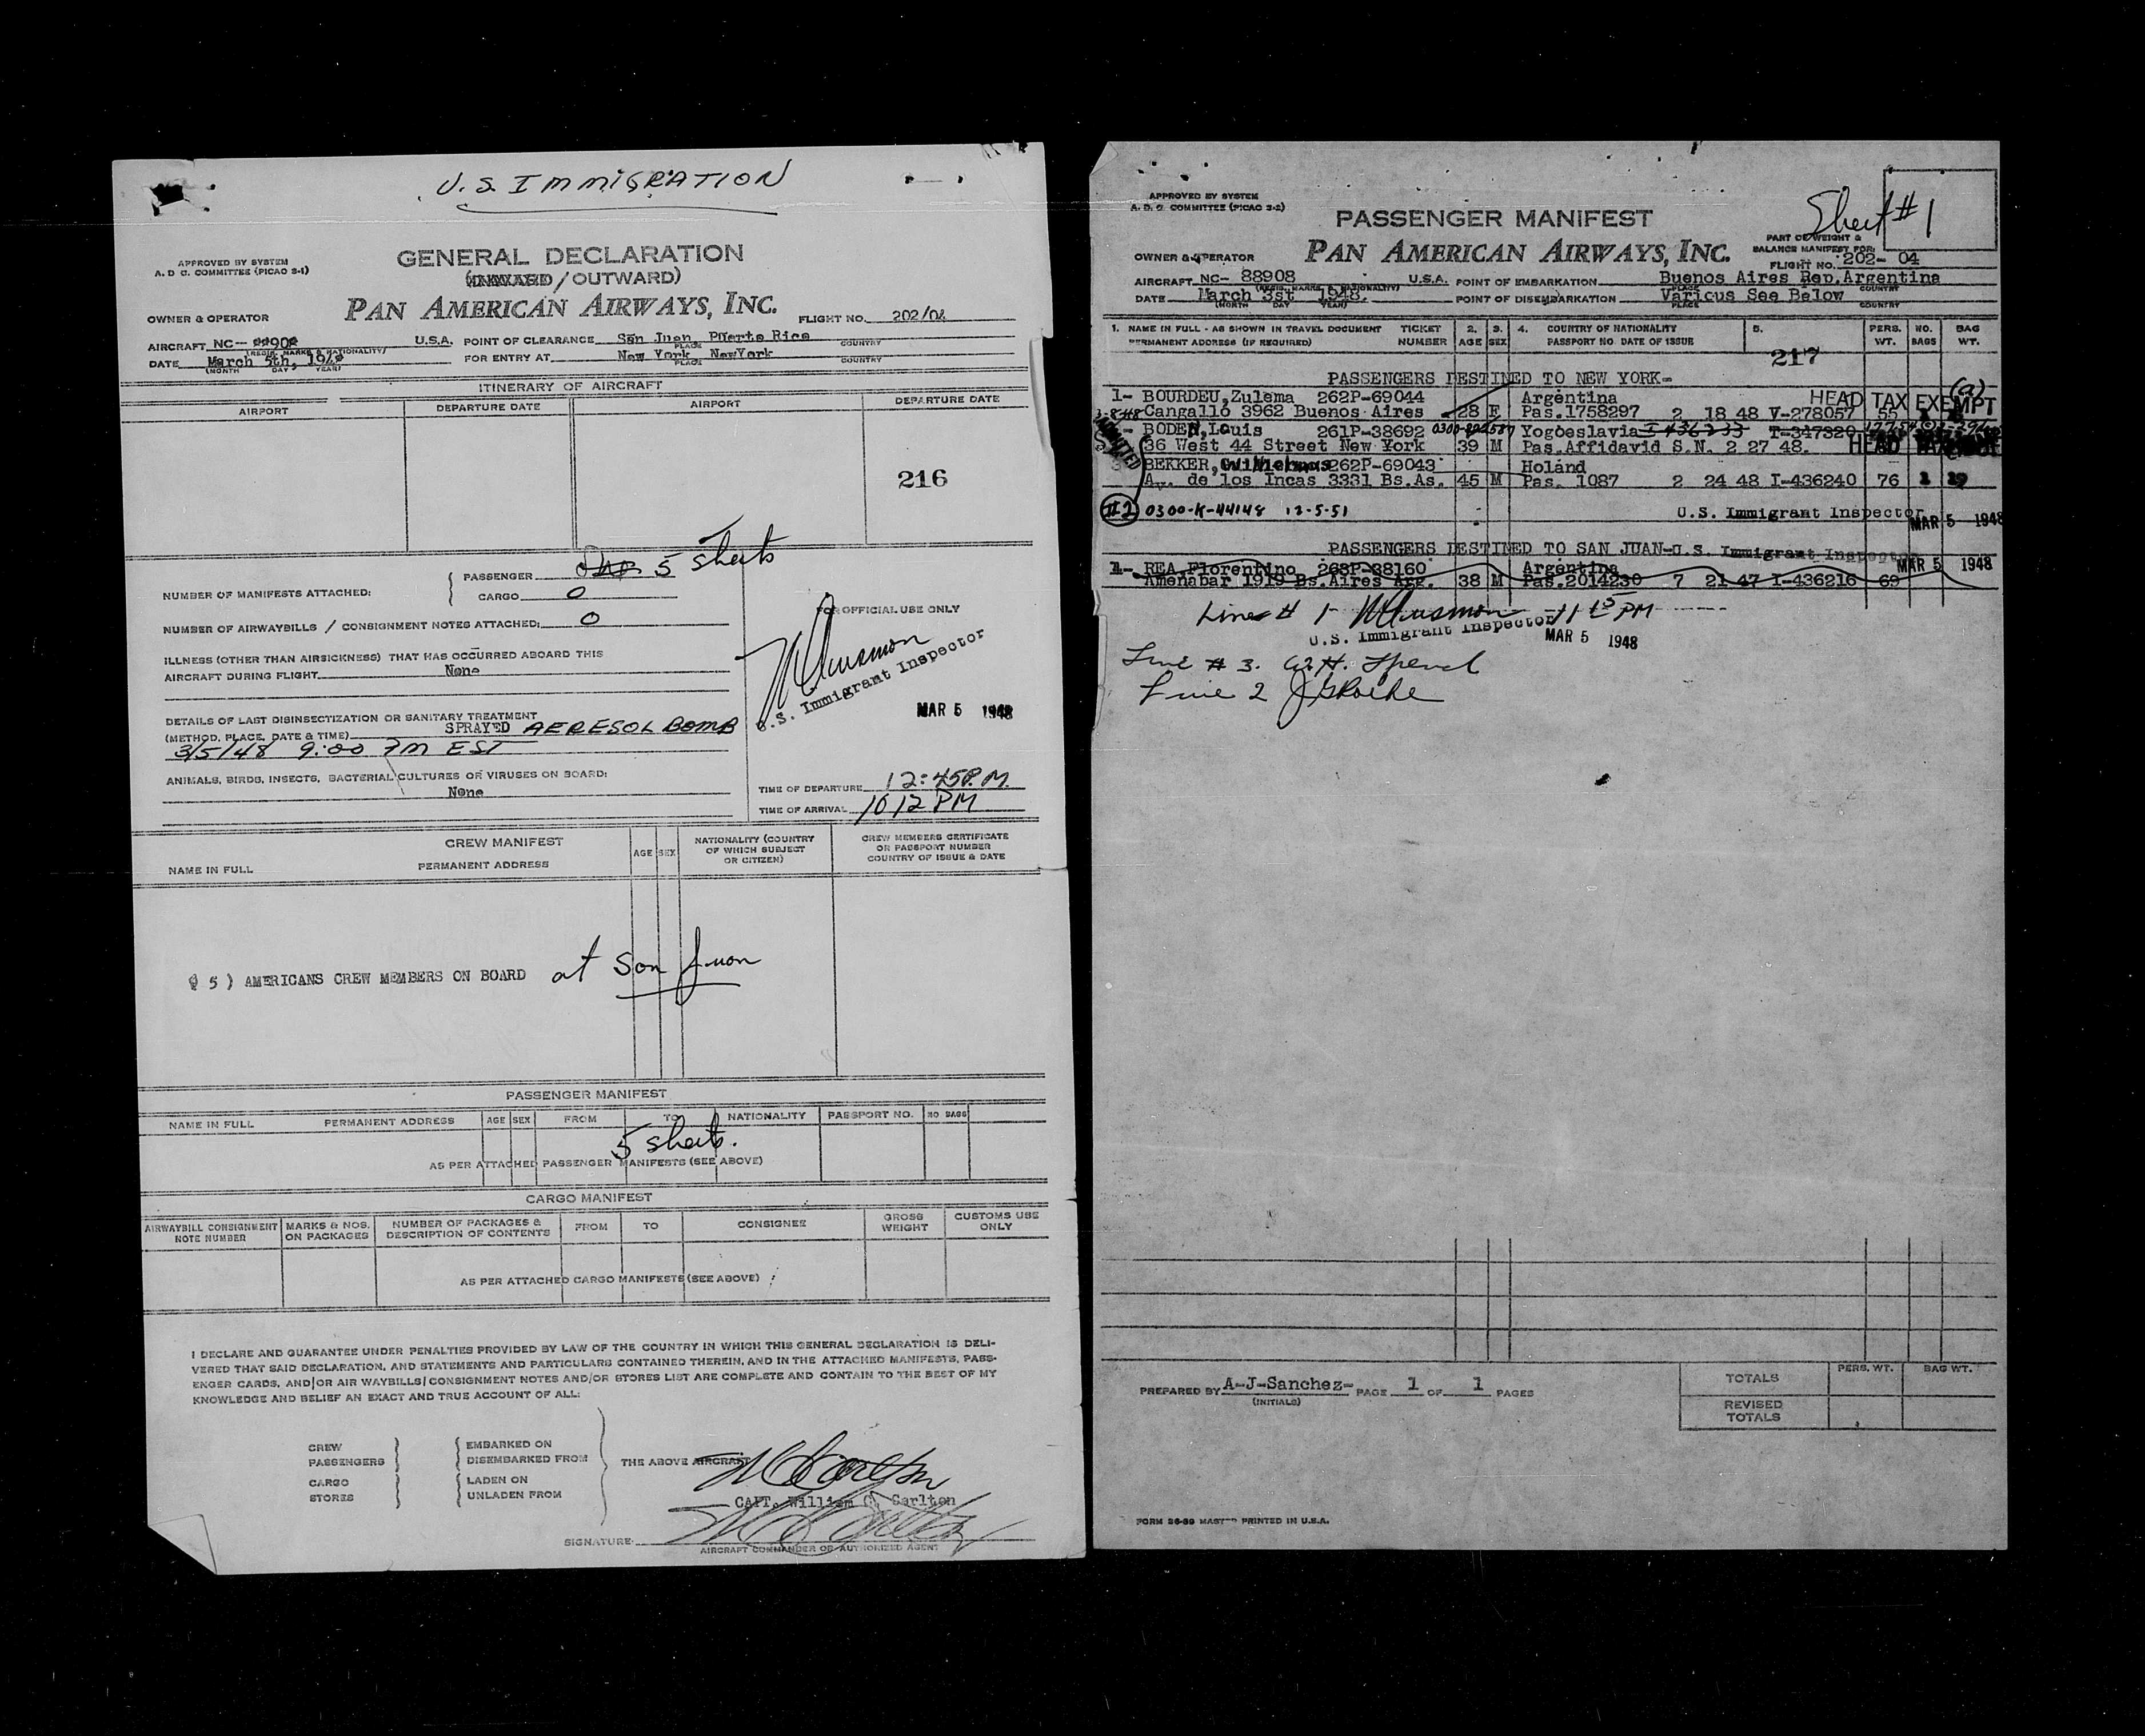 U.S. IMMIGRATION
APPROVED BY SYSTEM
A. D. C. COMMITTEE (PICAO 3-1)
GENERAL DECLARATION
(INWARD/OUTWARD)
PAN AMERICAN AIRWAYS, INC.
OWNER & OPERATOR
FLIGHT NO. 202/04
AIRCRAFT NC- 88908 U.S.A. POINT OF CLEARANCE San Juan Puerto Rico
(REGIS. MARKS & NATIONALITY) PLACE COUNTRY
DATE March 5th, 1948 FOR ENTRY AT New York NewYork
(MONTH DAY YEAR) PLACE COUNTRY
ITINERARY OF AIRCRAFT
AIRPORT DEPARTURE DATE AIRPORT DEPARTURE DATE
216
NUMBER OF MANIFESTS ATTACHED: PASSENGER 5 sheets
CARGO 0
NUMBER OF AIRWAYBILLS / CONSIGNMENT NOTES ATTACHED: 0
FOR OFFICIAL USE ONLY
ILLNESS (OTHER THAN AIRSICKNESS) THAT HAS OCCURRED ABOARD THIS
AIRCRAFT DURING FLIGHT None
U.S. Immigrant Inspector
MAR 5 1948
DETAILS OF LAST DISINSECTIZATION OR SANITARY TREATMENT
(METHOD, PLACE, DATE & TIME) SPRAYED AERESOL BOMB
3/5/48 9:00 PM EST
ANIMALS, BIRDS, INSECTS, BACTERIAL CULTURES OR VIRUSES ON BOARD:
None
TIME OF DEPARTURE 12:45P.M.
TIME OF ARRIVAL 1012 PM
CREW MANIFEST
NAME IN FULL PERMANENT ADDRESS AGE SEX NATIONALITY (COUNTRY OF WHICH SUBJECT OR CITIZEN) CREW MEMBERS CERTIFICATE OR PASSPORT NUMBER COUNTRY OF ISSUE & DATE
5 ) AMERICANS CREW MEMBERS ON BOARD at San Juan
PASSENGER MANIFEST
NAME IN FULL PERMANENT ADDRESS AGE SEX FROM TO NATIONALITY PASSPORT NO. NO BAGS
5 sheets.
AS PER ATTACHED PASSENGER MANIFESTS (SEE ABOVE)
CARGO MANIFEST
AIRWAYBILL CONSIGNMENT NOTE NUMBER MARKS & NOS. ON PACKAGES NUMBER OF PACKAGES & DESCRIPTION OF CONTENTS FROM TO CONSIGNEE GROSS WEIGHT CUSTOMS USE ONLY
AS PER ATTACHED CARGO MANIFESTS (SEE ABOVE)
I DECLARE AND GUARANTEE UNDER PENALTIES PROVIDED BY LAW OF THE COUNTRY IN WHICH THIS GENERAL DECLARATION IS DELI-
VERED THAT SAID DECLARATION, AND STATEMENTS AND PARTICULARS CONTAINED THEREIN, AND IN THE ATTACHED MANIFESTS, PASS-
ENGER CARDS, AND/OR AIR WAYBILLS/CONSIGNMENT NOTES AND/OR STORES LIST ARE COMPLETE AND CONTAIN TO THE BEST OF MY
KNOWLEDGE AND BELIEF AN EXACT AND TRUE ACCOUNT OF ALL:
CREW EMBARKED ON
PASSENGERS DISEMBARKED FROM THE ABOVE AIRCRAFT
CARGO LADEN ON
STORES UNLADEN FROM
CAPT. William C. Carlton
SIGNATURE
AIRCRAFT COMMANDER OR AUTHORIZED AGENT
APPROVED BY SYSTEM
A. D. C. COMMITTEE (PICAO 3-2)
PASSENGER MANIFEST
Sheet #1
PART OF WEIGHT &
BALANCE MANIFEST FOR:
OWNER & OPERATOR PAN AMERICAN AIRWAYS, INC. FLIGHT NO. 202- 04
AIRCRAFT NC- 88908 U.S.A. POINT OF EMBARKATION Buenos Aires Rep.Argentina
(REGIS. MARKS & NATIONALITY) PLACE COUNTRY
DATE March 3st 1948. POINT OF DISEMBARKATION Various See Below
(MONTH DAY YEAR) PLACE COUNTRY
1. NAME IN FULL - AS SHOWN IN TRAVEL DOCUMENT TICKET 2. 3. 4. COUNTRY OF NATIONALITY 5. PERS. NO. BAG
PERMANENT ADDRESS (IF REQUIRED) NUMBER AGE SEX PASSPORT NO. DATE OF ISSUE WT. BAGS WT.
217
PASSENGERS DESTINED TO NEW YORK-
1- BOURDEU,Zulema 262P-69044 Argentina HEAD TAX EXEMPT (a)
Cangallo 3962 Buenos Aires 28 F Pas.1758297 2 18 48 V-278057 55
ADMITTED
BODEN,Louis 261P-38692 Yogoeslavia I-436233 T-347320
36 West 44 Street New York 39 M Pas.Affidavid S.N. 2 27 48. HEAD TAX
3 BEKKER, 262P-69043 Holand
Av. de los Incas 3331 Bs.As. 45 M Pas. 1087 2 24 48 I-436240 76
#2 0300-K-44148 12-5-51 U.S. Immigrant Inspector MAR 5 1948
PASSENGERS DESTINED TO SAN JUAN- U.S. Immigrant Inspector
1- REA Florentino 263P-38160 Argentina MAR 5 1948
Amenabar 1919 Bs.Aires Arg. 38 M Pas.2014230 7 21 47 I-436216 69
Line # 1 1115 PM
U.S. Immigrant Inspector MAR 5 1948
Line # 3.
Line 2
PREPARED BY A-J-Sanchez- PAGE 1 OF 1 PAGES
(INITIALS)
PERS. WT. BAG WT.
TOTALS
REVISED TOTALS
FORM 26-39 MASTER PRINTED IN U.S.A.